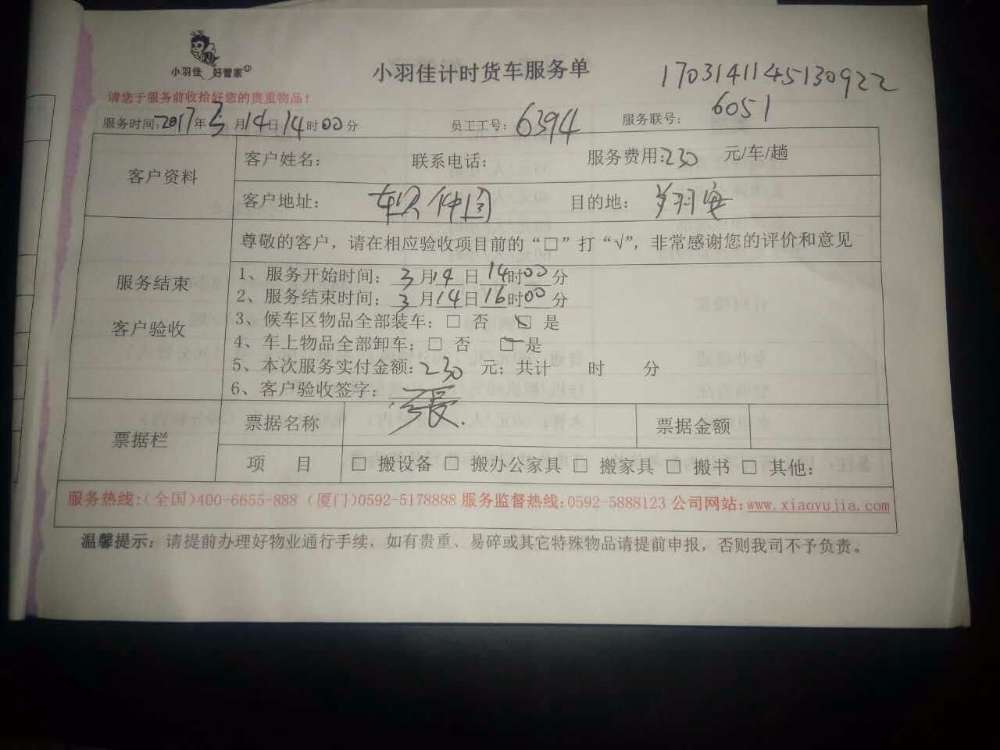 小羽佳 好管家
小羽佳计时货车服务单 170314114513092​2
请您于服务前收拾好您的贵重物品！
服务时间：2017年3月14日14时00分 员工工号：6394 服务联号：6051
客户资料 客户姓名： 联系电话： 服务费用：230 元/车/趟
客户地址： 目的地：
尊敬的客户，请在相应验收项目前的“□”打“√”，非常感谢您的评价和意见
服务结束
客户验收
1、服务开始时间：3月14日14时00分
2、服务结束时间：3月14日16时00分
3、候车区物品全部装车：□ 否 ☑ 是
4、车上物品全部卸车：□ 否 ☑ 是
5、本次服务实付金额：230 元；共计 时 分
6、客户验收签字：
票据栏 票据名称 票据金额
项 目 □ 搬设备 □ 搬办公家具 □ 搬家具 □ 搬书 □ 其他：
服务热线：（全国）400-6655-888（厦门）0592-5178888 服务监督热线：0592-5888123 公司网站：www.xiaoyujia.com
温馨提示：请提前办理好物业通行手续，如有贵重、易碎或其它特殊物品请提前申报，否则我司不予负责。